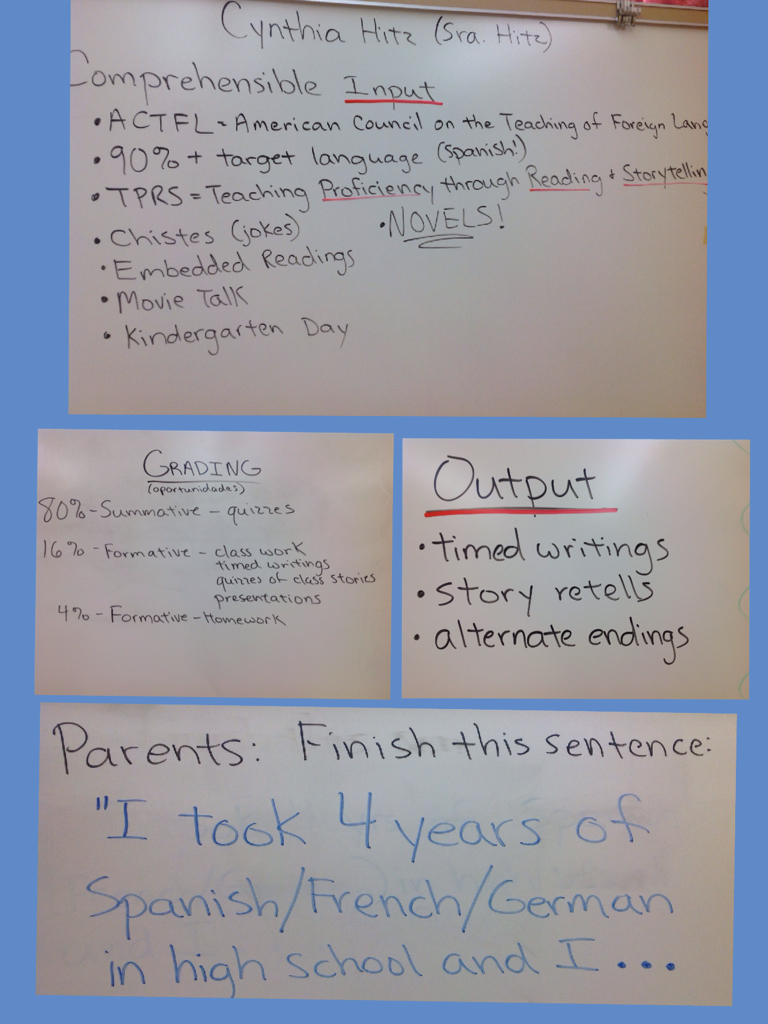 Cynthia Hitz (Sra. Hitz)
Comprehensible Input
• ACTFL = American Council on the Teaching of Foreign Lang
• 90% + target language (Spanish!)
• TPRS = Teaching Proficiency through Reading + Storytellin
• Chistes (jokes)
• NOVELS!
• Embedded Readings
• Movie Talk
• Kindergarten Day
GRADING
(oportunidades)
80% - Summative - quizzes
16% - Formative - class work
timed writings
quizzes of class stories
presentations
4% - Formative - Homework
Output
• timed writings
• story retells
• alternate endings
Parents: Finish this sentence:
"I took 4 years of
Spanish/French/German
in high school and I...